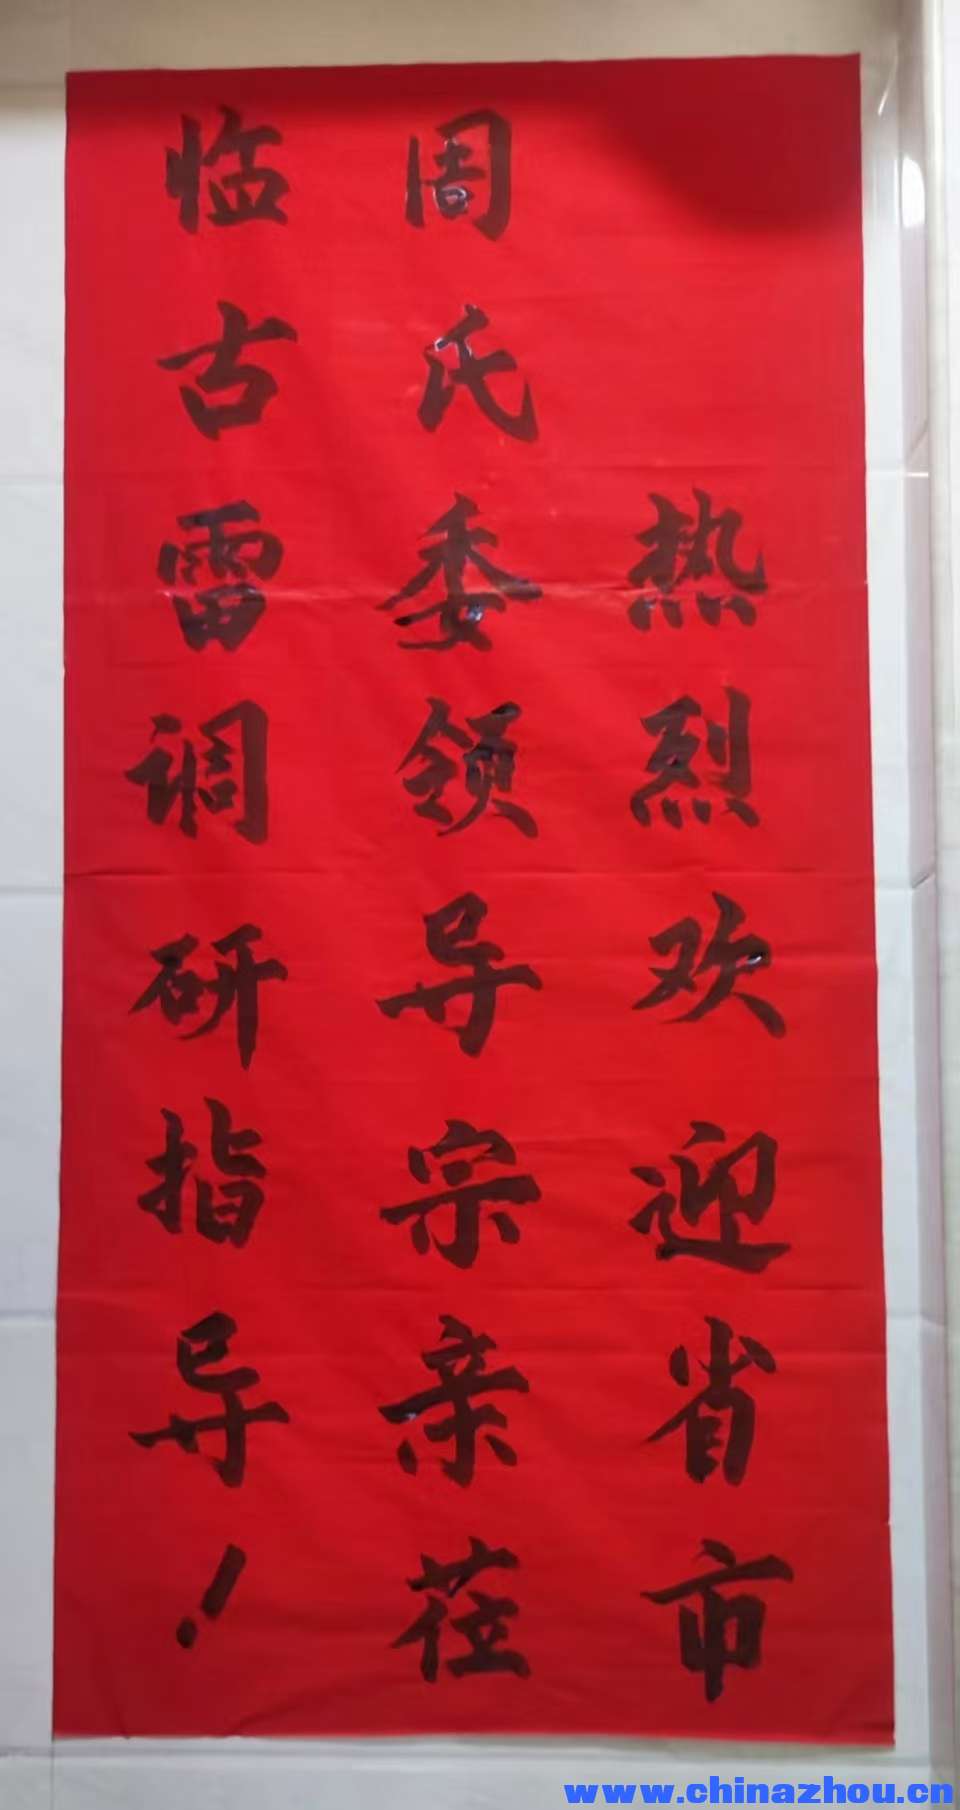 热烈欢迎省市
周氏委领导宗亲莅
临古雷调研指导！
www.chinazhou.cn